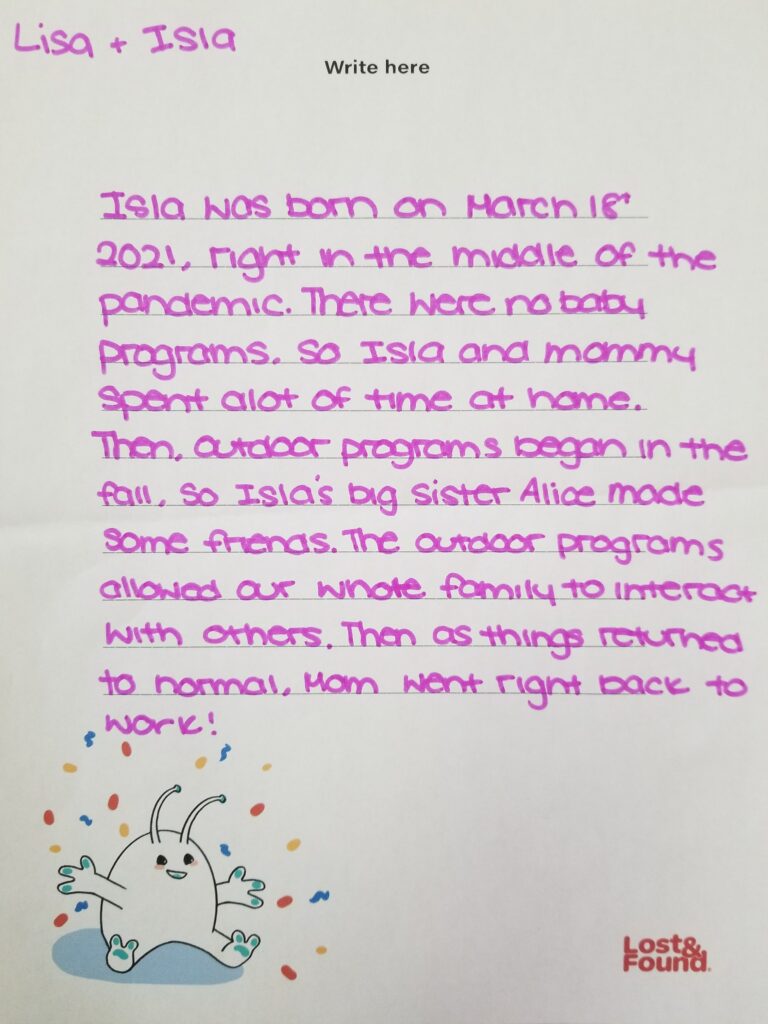 Lisa + Isla
Write here
Isla was born on March 18th
2021, right in the middle of the
pandemic. There were no baby
programs. So Isla and mommy
spent alot of time at home.
Then, outdoor programs began in the
fall, so Isla's big sister Alice made
some friends. The outdoor programs
allowed our whole family to interact
with others. Then as things returned
to normal, Mom went right back to
work!
Lost&
Found.